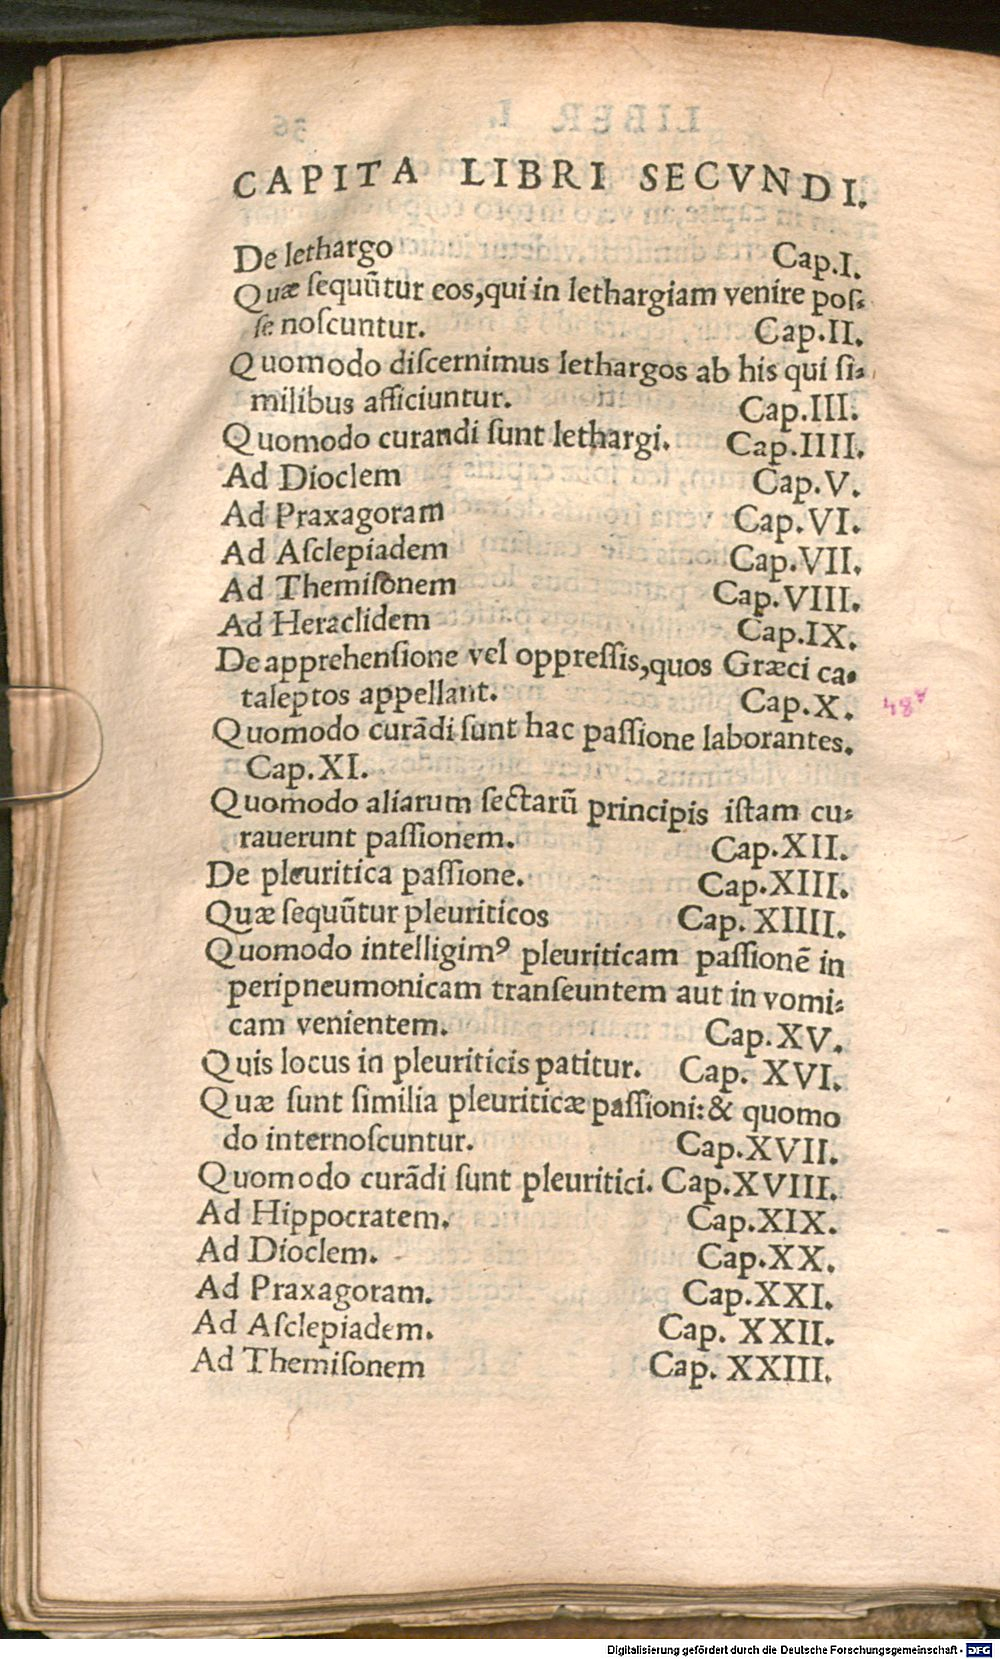 CAPITA LIBRI SECVNDI.
De lethargo Cap.I.
Quæ ſequũtur eos,qui in lethargiam venire poſ-
ſe noſcuntur. Cap.II.
Quomodo diſcernimus lethargos ab his qui ſi-
milibus afficiuntur. Cap.III.
Quomodo curandi ſunt lethargi. Cap.IIII.
Ad Dioclem Cap.V.
Ad Praxagoram Cap.VI.
Ad Aſclepiadem Cap.VII.
Ad Themiſonem Cap.VIII.
Ad Heraclidem Cap.IX.
De apprehenſione vel oppreſſis,quos Græci ca-
taleptos appellant. Cap.X. 48
Quomodo curãdi ſunt hac paſſione laborantes.
Cap.XI.
Quomodo aliarum ſectarũ principis iſtam cu-
rauerunt paſſionem. Cap.XII.
De pleuritica paſſione. Cap.XIII.
Quæ ſequũtur pleuriticos Cap. XIIII.
Quomodo intelligimꝰ pleuriticam paſſionẽ in
peripneumonicam tranſeuntem aut in vomi-
cam venientem. Cap.XV.
Quis locus in pleuriticis patitur. Cap. XVI.
Quæ ſunt ſimilia pleuriticæ paſſioni:& quomo
do internoſcuntur. Cap.XVII.
Quomodo curãdi ſunt pleuritici. Cap.XVIII.
Ad Hippocratem. Cap.XIX.
Ad Dioclem. Cap.XX.
Ad Praxagoram. Cap.XXI.
Ad Aſclepiadem. Cap. XXII.
Ad Themiſonem Cap. XXIII.
Digitalisierung gefördert durch die Deutsche Forschungsgemeinschaft - DFG